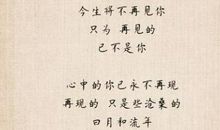 今生将不再见你
只为 再见的
已不是你
心中的你已永不再现
再现的 只是些沧桑的
日月和流年